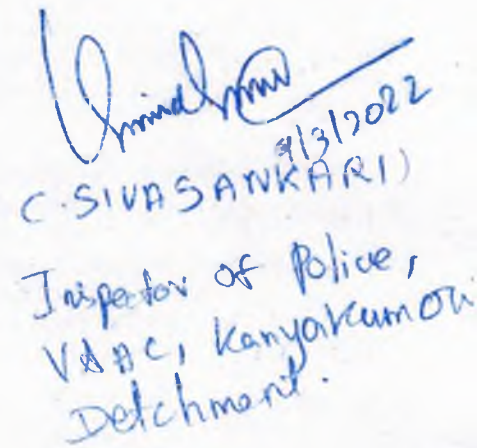 9/3/2022
(C. SIVASANKARI)
Inspector of Police,
V&AC, Kanyakumari
Detchment.